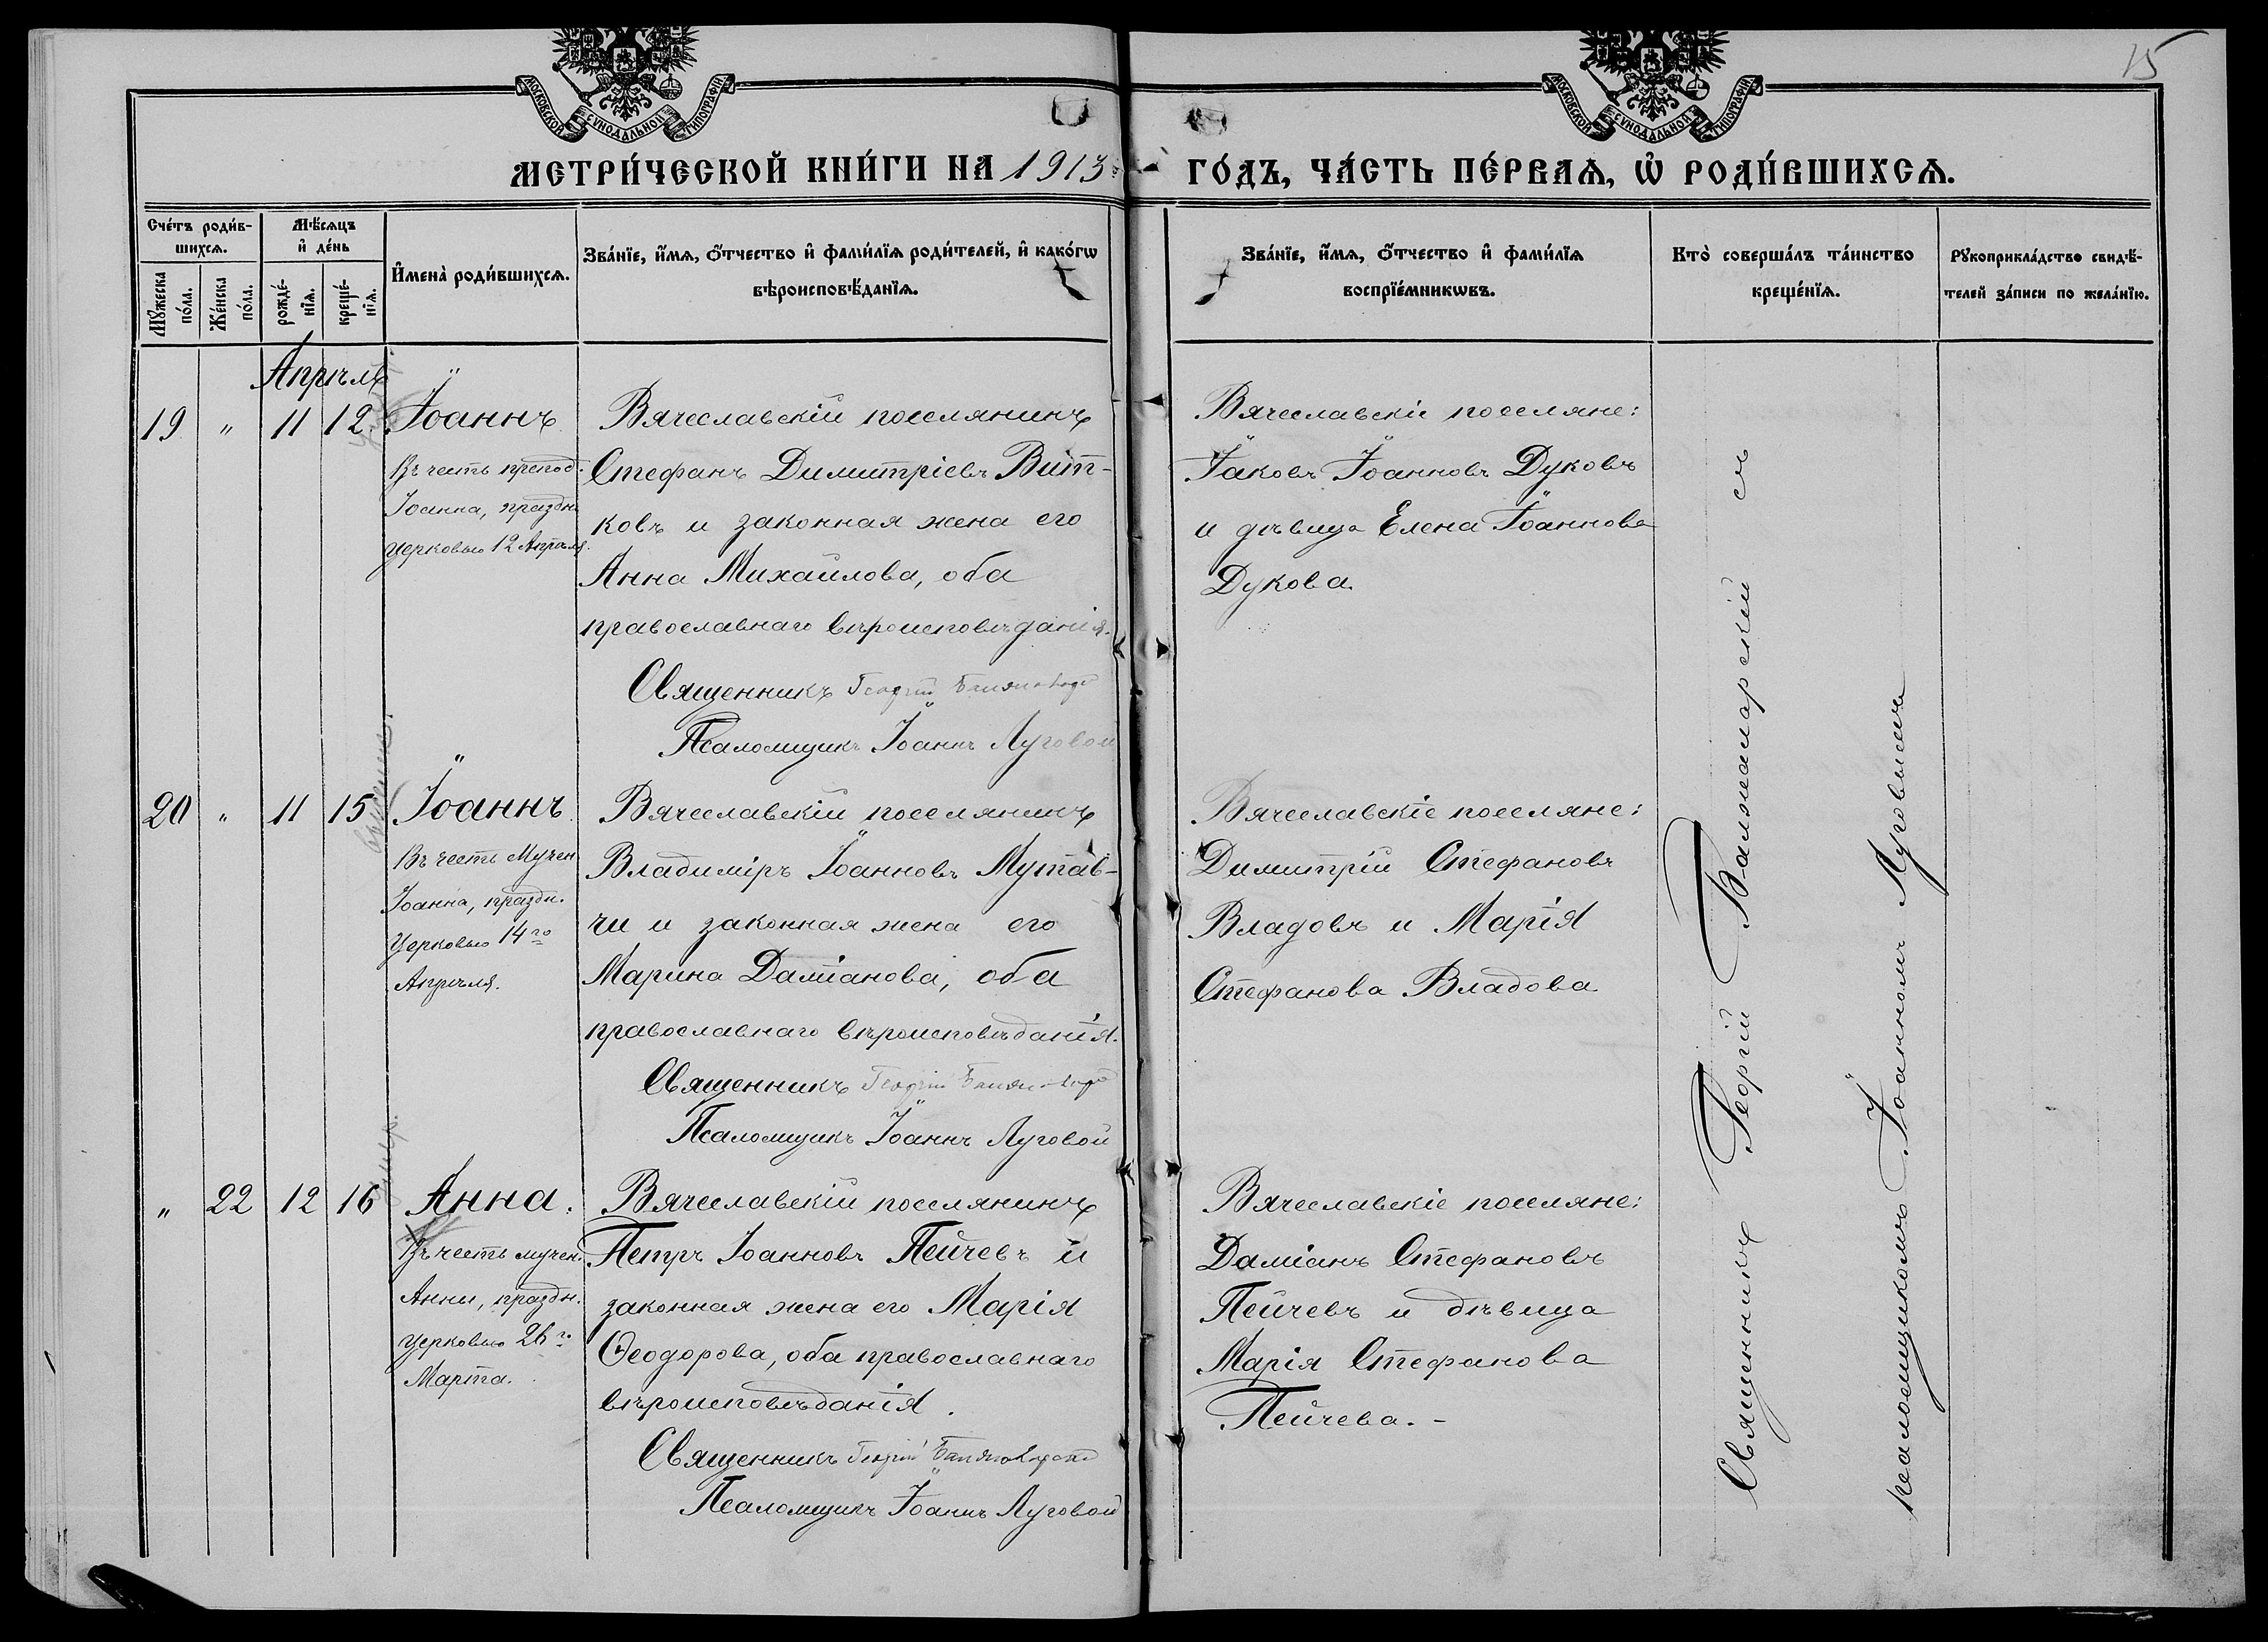 15
МОСКОВСКОЙ СѴНОДАЛЬНОЙ ТИПОГРАФІИ
МОСКОВСКОЙ СѴНОДАЛЬНОЙ ТИПОГРАФІИ
МЕТРИ́ЧЕСКОЙ КНИ́ГИ НА 1913 ГО́ДЪ, ЧА́СТЬ ПЕ́РВАѦ, Ѡ҆ РОДИ́ВШИХСѦ.
Сче́тъ роди́в-
шихсѧ.
Мꙋ́жеска
по́ла.
Же́нска
по́ла.
Мѣ́сѧцъ
и҆ де́нь
рожде́-
нїѧ.
креще́-
нїѧ.
И҆мена̀ роди́вшихсѧ.
Зва́нїе, и҆́мѧ, ѻ҆́тчество и҆ фами́лїѧ роди́телей, и҆ како́гѡ
вѣроисповѣ́данїѧ.
Зва́нїе, и҆́мѧ, ѻ҆́тчество и҆ фами́лїѧ
воспрїе́мникѡвъ.
Кто̀ соверша́лъ та́инство
креще́нїѧ.
Рꙋкоприкла́дство свидѣ́-
телей за́писи по жела́нїю.
Апрѣль
19 " 11 12 Іоаннъ.
Въ честь препод.
Іоанна, праздн.
Церковью 12 Апрѣля.
Вячеславскій поселянинъ
Стефанъ Димитріевъ Вит-
ковъ и законная жена его
Анна Михайлова, оба
православнаго вѣроисповѣданія.
Священникъ Георгій
Псаломщикъ Іоаннъ Луговой
Вячеславскіе поселяне:
Іаковъ Іоанновъ Дуковъ
и дѣвица Елена Іоаннова
Дукова.
20 " 11 15 Іоаннъ.
Въ честь Мучен.
Іоанна, праздн.
Церковью 14го
Апрѣля.
Вячеславскій поселянинъ
Владиміръ Іоанновъ Мутав-
чи и законная жена его
Марина Даміанова, оба
православнаго вѣроисповѣданія.
Священникъ Георгій
Псаломщикъ Іоаннъ Луговой
Вячеславскіе поселяне:
Димитрій Стефановъ
Владовъ и Марія
Стефанова Владова.
" 22 12 16 Анна.
Въ честь мучен.
Анны, праздн.
Церковью 26го
Марта.
Вячеславскій поселянинъ
Петръ Іоанновъ Пейчевъ и
законная жена его Марія
Ѳеодорова, оба православнаго
вѣроисповѣданія.
Священникъ Георгій
Псаломщикъ Іоаннъ Луговой
Вячеславскіе поселяне:
Даміанъ Стефановъ
Пейчевъ и дѣвица
Марія Стефанова
Пейчева. -
Священникъ Георгій съ
псаломщикомъ Іоанномъ Луговымъ